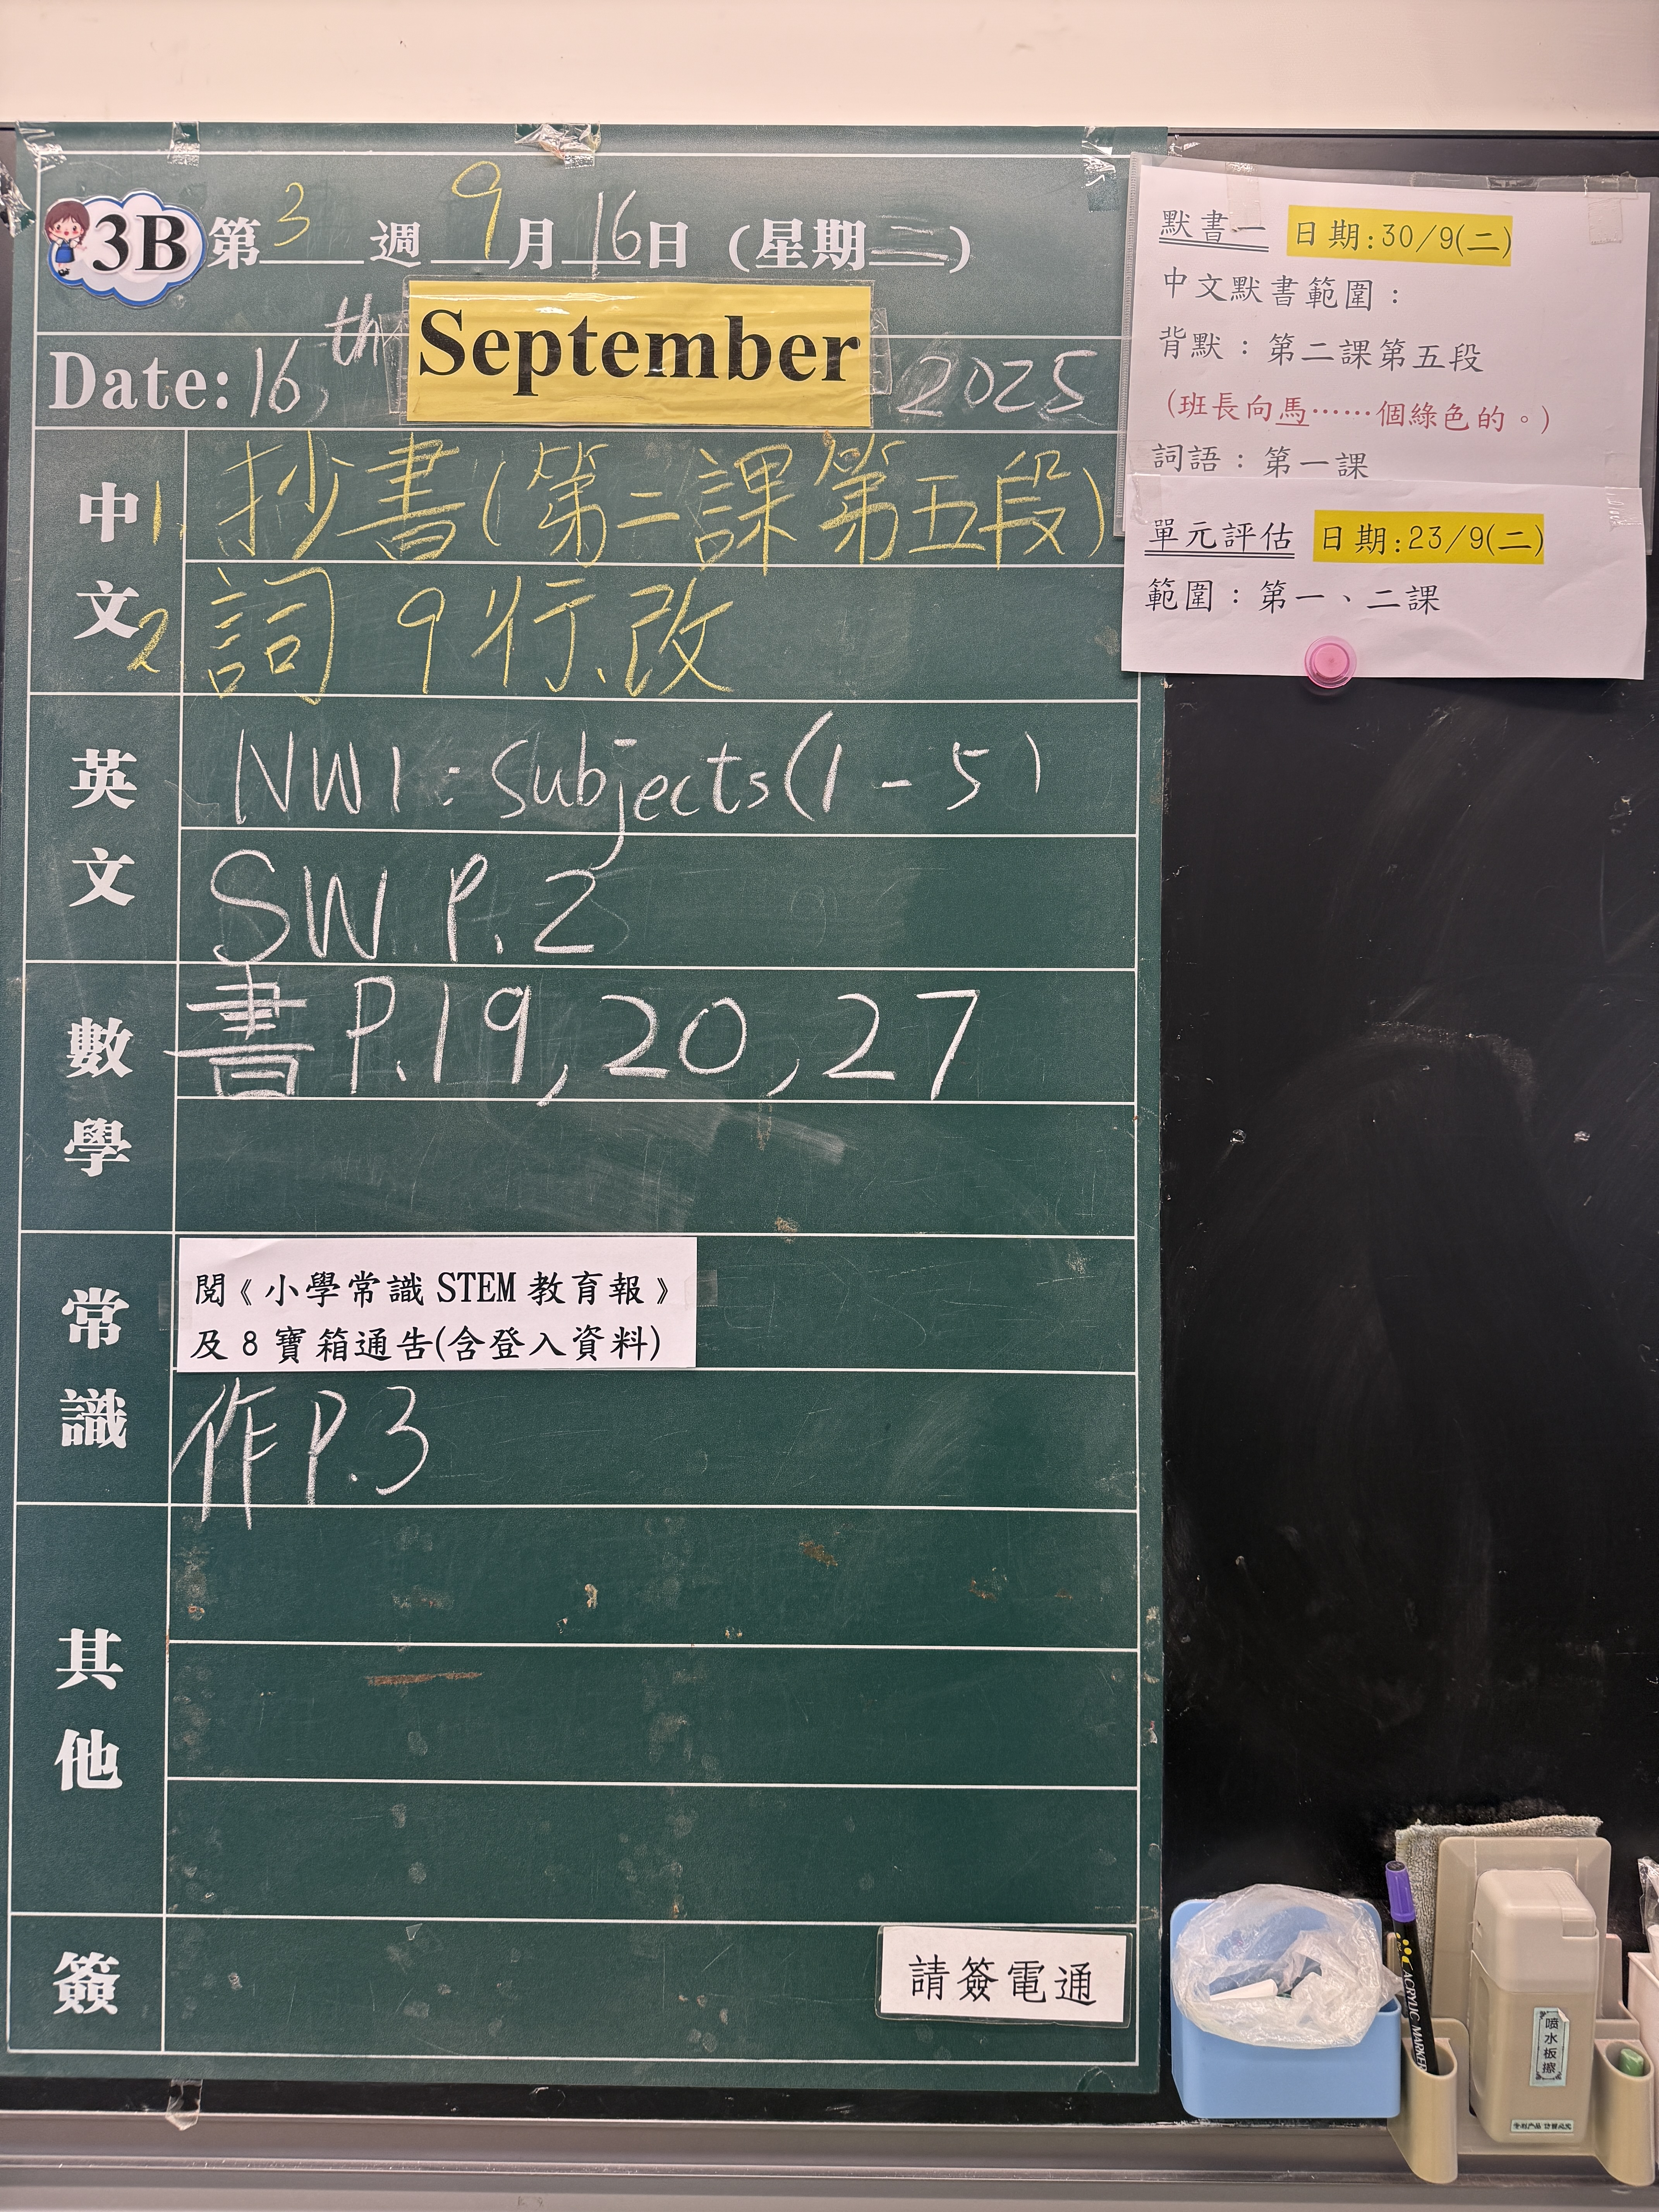 3B 第 3 週 9 月 16 日 (星期二)
Date: 16th September 2025
中文
1. 抄書(第二課第五段)
2 詞 9行.改
英文
NW1: Subjects(1-5)
SW P.2
數學
書 P.19, 20, 27
常識
閱《小學常識 STEM 教育報》
及 8 寶箱通告(含登入資料)
作 P.3
其他
簽
請簽電通
默書一 日期:30/9(二)
中文默書範圍：
背默：第二課第五段
(班長向馬……個綠色的。)
詞語：第一課
單元評估 日期:23/9(二)
範圍：第一、二課
ACRYLIC MARKER
喷水板擦